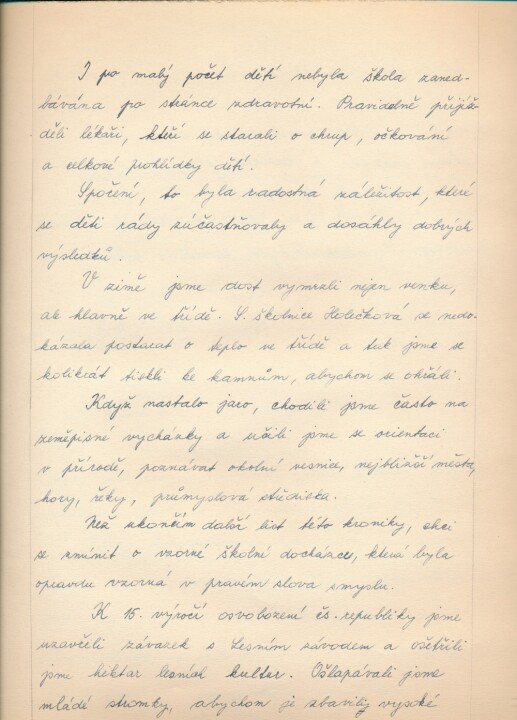 I po malý počet dětí nebyla škola zaned-
bávána po stránce zdravotní. Pravidelně přijíž-
děli lékaři, kteří se starali o chrup, očkování
a celkové prohlídky dětí.
Spoření, to byla radostná záležitost, které
se děti rády zúčastňovaly a dosáhly dobrých
výsledků.
V zimě jsme dost vymrzli nejen venku,
ale hlavně ve třídě. S. školnice Holečková se nedo-
kázala postarat o teplo ve třídě a tak jsme se
kolikrát tiskli ke kamnům, abychom se ohřáli.
Když nastalo jaro, chodili jsme často na
zeměpisné vycházky a učili jsme se orientaci
v přírodě, poznávat okolní vesnice, nejbližší města,
hory, řeky, průmyslová střediska.
Než ukončím další list této kroniky, chci
se zmínit o vzorné školní docházce, která byla
opravdu vzorná v pravém slova smyslu.
K 15. výročí osvobození čs. republiky jsme
uzavřeli závazek s Lesním závodem a ošetřili
jsme hektar lesních kultur. Ošlapávali jsme
mladé stromky, abychom je zbavili vysoké